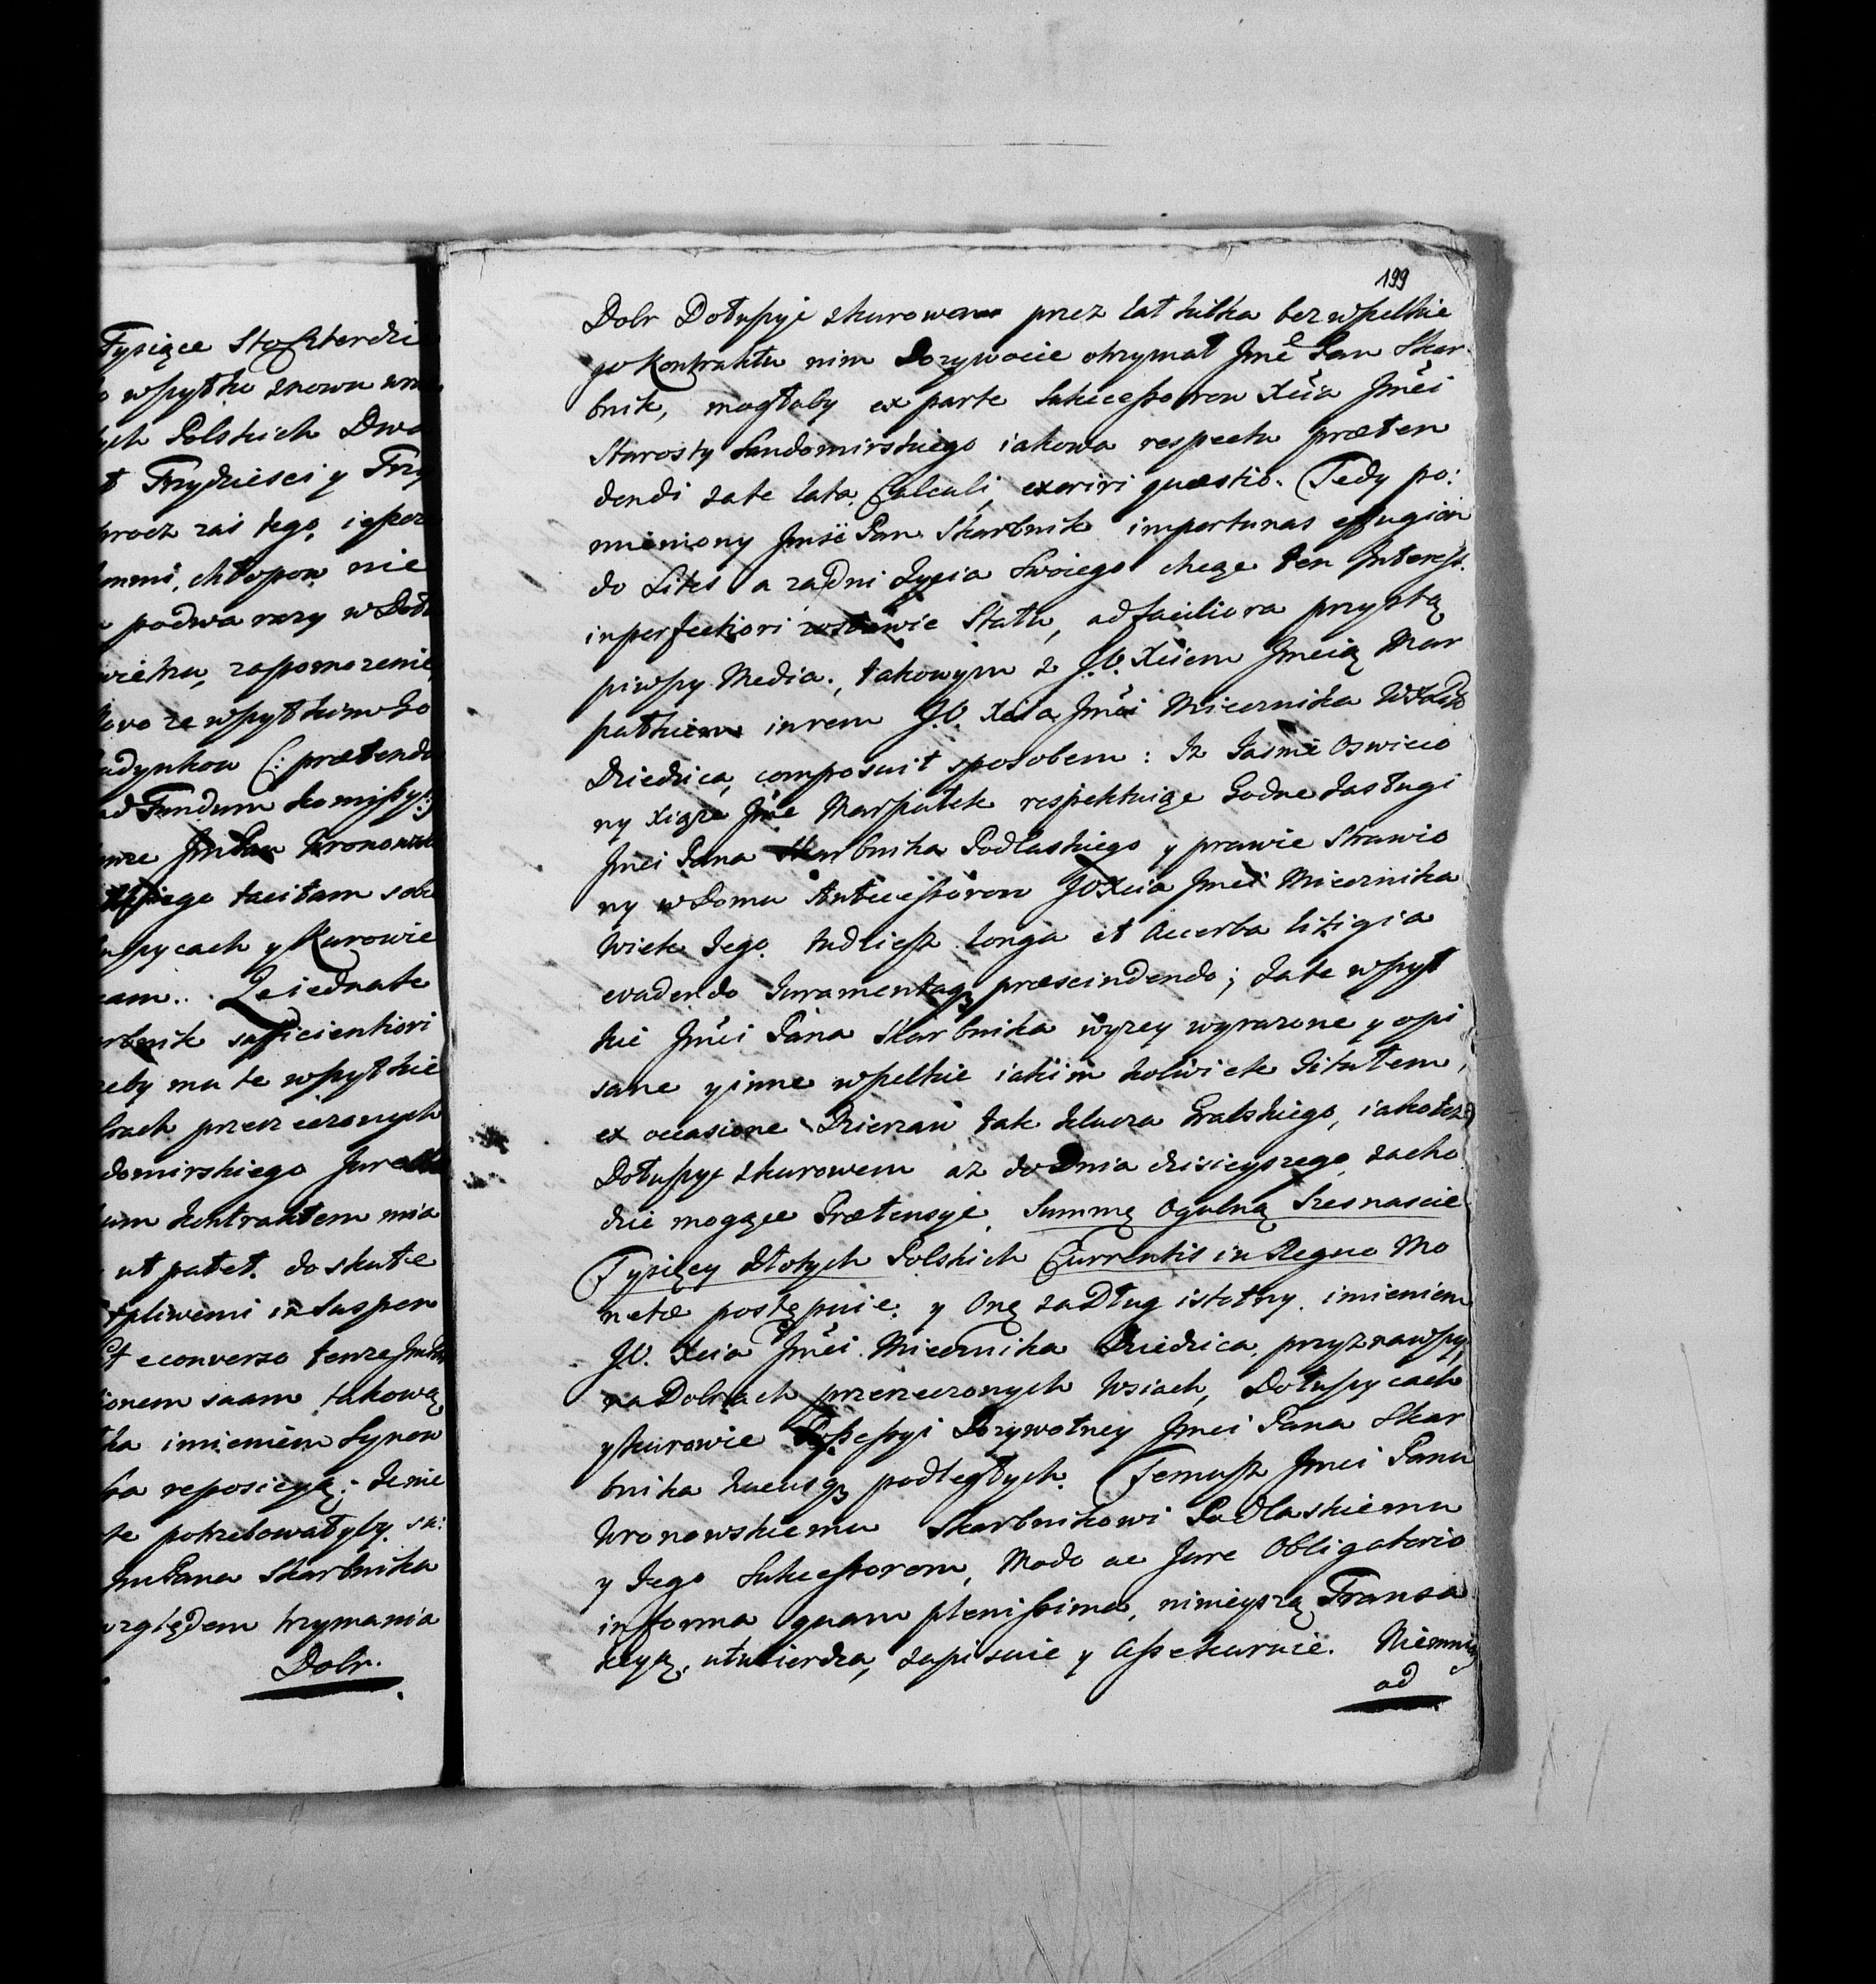 Tysiące Sto Czterdzi
wszytko znowu
ych Polskich Dwa
t Trzydziesci y Trzy
procz zaś tego,
chłopow nie
podwa razy w
zapomozenie
ze wszytkim
(: prætendo
ad Fundum komissyi:)
Jm Pan Wronowski
tacitam sobie
uszycach y Kurowie
eam. Zeiednak
rbnik sufficientiori
zeby mu te wszytkie
brach przerzeczonych
domirskiego Jure
um kontraktem mia
ut patet. do skutk
tpliwemi in Suspen
Et e converso tenze Jm Pan
ionem suam takową
ka imieniem Synow
ba reposicyą; ze nie
te potrzebowałyby.
Jm Pana Skarbnika
względem trzymania
Dobr.
199
Dobr Dołuszyc z kurowem przez lat kilka bez wszelkie
go Kontraktu nim Dozywocie otrzymał Jmć Pan Skar
bnik, mogłaby ex parte Sukcessorow Xcia Jmci
Starosty Sandomirskiego iakowa respectu præten
dendi za te lata Calculi, exoriri quæstio. Tedy po:
mieniony Jmść Pan Skarbnik importunas effugien
do Lites a za dni Zycia Swoiego chcąc ten Interess.
in perfectiori zostawic Statu, ad faciliora przystą
piwszy Media., takowym z J.O. Xciem Jmcią Mar
szałkiem in rem J.O. Xcia Jmci Miecznika WXLitt
Dziedzica, composuit sposobem: Iz Jasnie Oswieco
ny Xiąze Jmć Marszałek respektuiąc Godne Zasługi
Jmci Pana Skarbnika Podlaskiego y prawie Strawio
ny w Domu Antecessorow JOXcia Jmci Miecznika
Wiek Jego. Tudziesz longa et Acerba litigia
evadendo Juramentaq₃ præscindendo; za te wszyt
kie Jmci Pana Skarbnika wyzey wyrazone y opi
sane y inne wszelkie iakim kolwiek Titułem,
ex occasione Dzierzaw tak klucza Gratskiego, iako tez
Dołuszyc z kurowem az do Dnia dzisieyszego, zacho
dzic mogące Prætensye, Summę Ogulną Szesnascie
Tysięcy Złotych Polskich Currentis in Regno Mo
netæ postępuie, y Onę za Dług istotny, imieniem
J.O. Xcia Jmci Miecznika Dziedzica, przyznawszy,
na Dobrach przerzeczonych Wsiach, Dołuszycach
y Kurowie Possessyi Dozywotney Jmci Pana Skar
bnika hucusq₃ podległych. Temusz Jmci Panu
Wronowskiemu Skarbnikowi Podlaskiemu
y Jego Sukcessorom, Modo ac Jure Obligatorio
in forma quam plenissima, ninieyszą Transa
kcyą, utwierdza, zapisuie y Assekuruie. Niemniey
ad